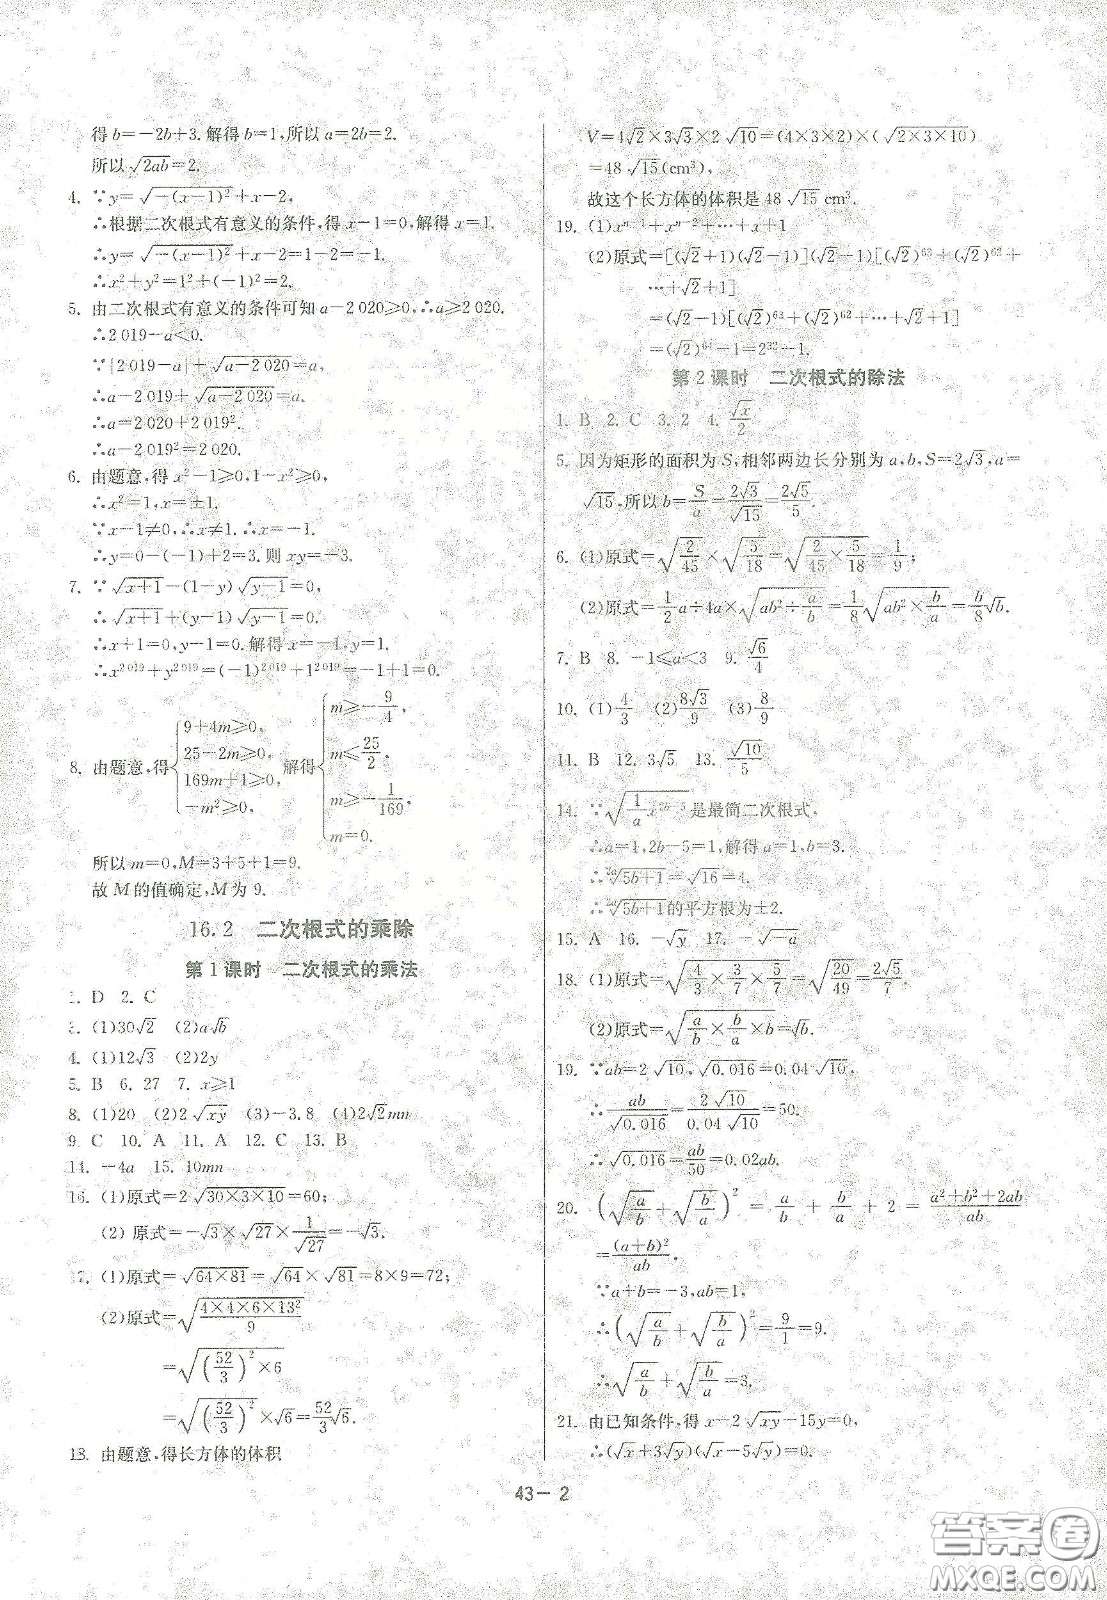 得b=-2b+3.解得b=1,所以a=2b=2.
所以√(2ab)=2.
4. ∵y=√(-(x-1)²)+x-2,
∴根据二次根式有意义的条件,得x-1=0,解得x=1.
∴y=√(-(x-1)²)+x-2=1-2=-1.
∴x²+y²=1²+(-1)²=2.
5. 由二次根式有意义的条件可知a-2 020≥0,∴a≥2 020.
∴2 019-a<0.
∵|2 019-a|+√(a-2 020)=a,
∴a-2 019+√(a-2 020)=a.
∴a=2 020+2 019².
∴a-2 019²=2 020.
6. 由题意,得x²-1≥0,1-x²≥0,
∴x²=1,x=±1.
∵x-1≠0,∴x≠1.∴x=-1.
∴y=0-(-1)+2=3.则xy=-3.
7. ∵√(x+1)-(1-y)√(y-1)=0,
∴√(x+1)+(y-1)√(y-1)=0.
∴x+1=0,y-1=0.解得x=-1,y=1.
∴x^2 019+y^2 019=(-1)^2 019+1^2 019=-1+1=0.
8. 由题意,得{9+4m≥0, 25-2m≥0, 169m+1≥0, -m²≥0, 解得{m≥-9/4, m≤25/2, m≥-1/169, m=0.
所以m=0,M=3+5+1=9.
故M的值确定,M为9.
16.2 二次根式的乘除
第1课时 二次根式的乘法
1. D 2. C
3. (1)30√2 (2)a√b
4. (1)12√3 (2)2y
5. B 6. 27 7. x≥1
8. (1)20 (2)2√(xy) (3)-3.8 (4)2√2mn
9. C 10. A 11. A 12. C 13. B
14. -4a 15. 10mn
16. (1)原式=2√(30×3×10)=60;
(2)原式=-√3×√27×1/√27=-√3.
17. (1)原式=√(64×81)=√64×√81=8×9=72;
(2)原式=√(4×4×6×13²/9)
=√((52/3)²×6)
=√((52/3)²)×√6=52/3√6.
18. 由题意,得长方体的体积
V=4√2×3√3×2√10=(4×3×2)×(√(2×3×10))
=48√15(cm³),
故这个长方体的体积是48√15 cm³.
19. (1)xⁿ⁻¹+xⁿ⁻²+…+x+1
(2)原式=[(√2+1)(√2-1)][(√2)⁶³+(√2)⁶²+
…+√2+1]
=(√2-1)[(√2)⁶³+(√2)⁶²+…+√2+1]
=(√2)⁶⁴-1=2³²-1.
第2课时 二次根式的除法
1. B 2. C 3. 2 4. √x/2
5. 因为矩形的面积为S,相邻两边长分别为a,b,S=2√3,a=
√15,所以b=S/a=2√3/√15=2√5/5.
6. (1)原式=√(2/45)×√(5/18)=√(2/45×5/18)=1/9;
(2)原式=1/2a÷4a×√(ab²÷a/b)=1/8√(ab²×b/a)=b/8√b.
7. B 8. -1≤a<3 9. √6/4
10. (1)4/3 (2)8√3/9 (3)8/9
11. B 12. 3√5 13. √10/5
14. ∵√(1/a x^(2b-5))是最简二次根式,
∴a=1,2b-5=1,解得a=1,b=3.
∴^(2a)√(5b+1)=√16=4.
∴^(2a)√(5b+1)的平方根为±2.
15. A 16. -√y 17. -√(-a)
18. (1)原式=√(4/3×3/7×5/7)=√(20/49)=2√5/7.
(2)原式=√(a/b×b/a×b)=√b.
19. ∵ab=2√10,√0.016=0.04√10,
∴ab/√0.016=2√10/0.04√10=50.
∴√0.016=ab/50=0.02ab.
20. (√(a/b)+√(b/a))²=a/b+b/a+2=(a²+b²+2ab)/ab
=(a+b)²/ab.
∵a+b=-3,ab=1,
∴(√(a/b)+√(b/a))²=9/1=9.
∴√(a/b)+√(b/a)=3.
21. 由已知条件,得x-2√(xy)-15y=0,
∴(√x+3√y)(√x-5√y)=0.
43-2
答案圈
MXQE.COM